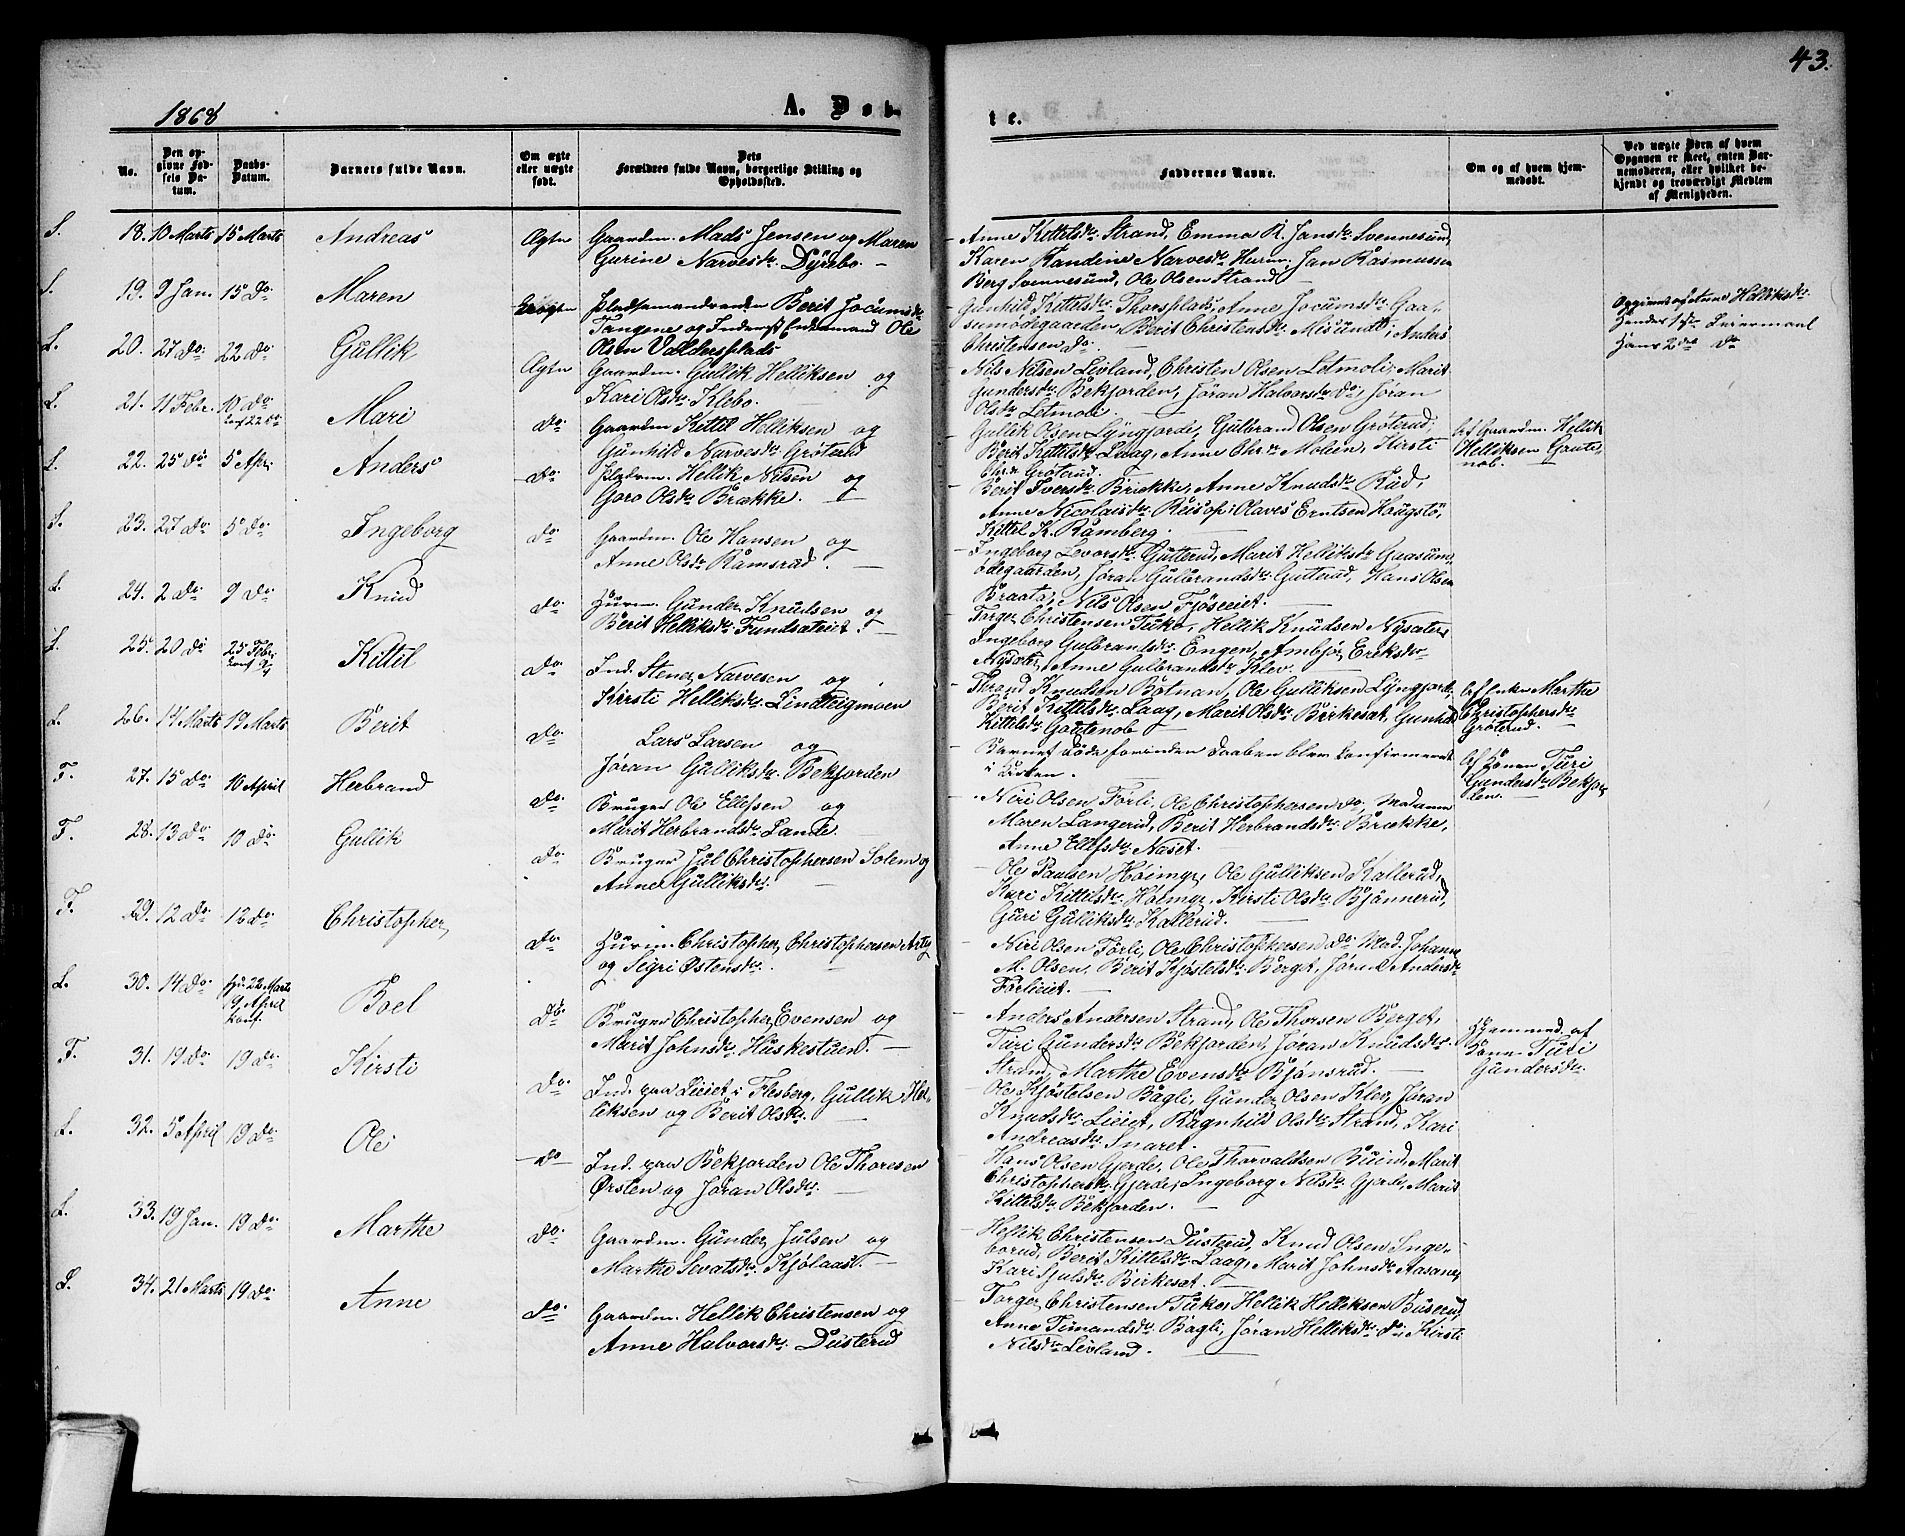 43.
1868
A. Døb-
te.
No.
Den op-
givne Fød-
sels Da-
tum.
Daabs-
Datum.
Barnets fulde Navn.
Om ægte
eller uægte
født.
Dets
Forældres fulde Navn, borgerlige Stilling og
Opholdssted.
Faddernes Navne.
Om og af hvem hjem-
medøbt.
Ved uægte Børn af hvem
Opgaven er skeet, enten Bar-
nemoderen, eller hvilket be-
kjendt og troværdigt Medlem
af Menigheden.
18. 10 Marts 15 Marts Andreas Ægte Gaardm. Mads Jensen og Maren
Gurine Narvesdr. Dyrebo.
Anne Kittelsdr. Strand, Emma R. Jansdr. Svennesund,
Karen Randine Narvesdr. Hurm, Jan Rasmussen
Berg Svennesund, Ole Olsen Strand
19. 9 Jan. 15 Do. Maren Uægte Pladsemandsenke Berit Jocumsdr.
Tangene og Inderst Enkemand Ole
Olsen Valdersplads
Gunhild Kittelsdr. Thorsplads, Anne Jocumsdr. Gaa-
sumødegaarden, Berit Christensdr. Misund, Anders
Christensen Do.
Helliksdr.
Hendes 1ste Leiermaal
Hans 2det Do
20. 27 Do. 22 Do. Gullik Ægte Gaardm. Gullik Helliksen og
Kari Olsdr. Klebo.
Nils Nilsen Livland, Christen Olsen Letmoli, Marit
Gundersdr. Bekjorden, Jøran Halvorsdr. Do, Jøran
Olsdr. Letmoli.
21. 11 Febr. 10 Do. Mari Do. Gaardm. Kittil Helliksen og
Gunhild Narvesdr. Grøterud
Gullik Olsen Lyngjorde, Gulbrand Olsen Grøterud,
Berit Kittelsdr. Laag, Anne Chrdr. Moen, Kirsti
Chrdr. Grøterud.
Gaardm. Hellik
Helliksen Goute-
nob.
22. 25 Do 5 Apr. Anders Do. Pladsm. Hellik Nilsen og
Goro Olsdr. Brække.
Berit Iversdr. Brække, Anne Knudsdr. Rud,
Anne Nicolaisdr. Olaves Erntsen Hougstø,
Kittil K. Ramberg.
23. 27 Do 5 Do. Ingeborg Do. Gaardm. Ole Hansen og
Anne Olsdr. Ramsrud.
Ingeborg Levorsdr. Gutterud, Marit Helliksdr. Gaasum-
ødegaarden, Jøran Gulbrandsdr. Gutterud, Hans Olsen
Braata, Nils Olsen Fjøseiet.
24. 2 Do 9 Do. Knud Do. Husm. Gunder Knudsen og
Berit Helliksdr. Fundsæteiet.
Torger Christensen Tuko, Hellik Knudsen Nysæter,
Ingeborg Gulbrandsdr. Engen, Ambjør Eriksdr.
Nysæter, Anne Gulbrandsdr. Klev.
25. 20 Do 25 Febr. Kittil Do. Ind. Stener Narvesen og
Kirsti Helliksdr. Lindteigmoen
Thrond Knudsen Botnan, Ole Gulliksen Lyngjorde,
Berit Kittelsdr. Laag, Marit Olsdr. Birkesæt, Gunhild
Kittelsdr. Goutenob
Af Enken Marthe
Christophersdr.
Grøterud.
26. 14 Marts 19 Marts Berit Do. Lars Larsen og
Jøran Gulliksdr. Bekjorden
Barnet døde forinden Daaben blev confirmeret
i Kirken.
Af Konen Turi
Gundersdr. Bekjor-
den.
27. 15 Do. 10 April Herbrand Do. Bruger Ole Ellefsen og
Marit Herbrandsdr. Lande.
Niri Olsen Førli, Ole Christophersen Do, Madame
Maren Langerud, Berit Herbrandsdr. Brække,
Anne Ellefsdr. Naset.
28. 13 Do 10 Do. Gullik Do. Bruger Jul Christophersen Solem og
Anne Gulliksdr.
Ole Paulsen Høimyr, Ole Gulliksen Kallerud,
Kari Kittelsdr. Høimyr, Kirsti Olsdr. Bjønnerud,
Guri Gulliksdr. Kallerud.
29. 12 Do. 12 Do. Christopher, Do. Husm. Christopher Christophersen
og Sigri Østensdr.
Niri Olsen Førli, Ole Christophersen Do. Mad. Johanne
M. Olsen, Berit Kjøstelsdr. Berget, Jøran Andersdr.
Førlieiet.
30. 14 Do. Hj. 22 Marts
9 April
Conf. Boel Do. Bruger Christopher Evensen og
Marit Johnsdr. Huskestuen.
Anders Andersen Strand, Ole Thorsen Berget,
Turi Gundersdr. Bekjorden, Jøran Knudsdr.
Strand, Marthe Evensdr. Bjønsrud.
Hjemmed. af
Kone Turi
Gundersdr.
31. 19 Do. 19 Do. Kirsti Do. Ind. paa Lieiet i Flesberg, Gullik Hel-
liksen og Berit Olsdr.
Ole Kjøstelsen Bagli, Gunder Olsen Klev, Jøran
Knudsdr. Lieiet, Ragnhild Olsdr. Strand, Kari
Andreasdr. Snaret.
32. 5 April 19 Do. Ole Do Ind. paa Bekjorden Ole Thoresen
Ørsten og Jøran Olsdr.
Hans Olsen Gjerde, Ole Thorvaldsen Buind, Marit
Christophersdr. Gjerde, Ingeborg Nilsdr. Gjerde, Marit
Kittelsdr. Bekjorden.
33. 19 Jan. 19 Do. Marthe Do. Gaardm. Gunder Julsen og
Marthe Sevatsdr. Kjølaas.
Hellik Christensen Dusterud, Knud Olsen Inge-
borud, Berit Kittelsdr. Laag, Marit Johnsdr. Aasane,
Kari Julsdr. Birkesæt.
34. 21 Marts 19 Do. Anne Do. Gaardm. Hellik Christensen og
Anne Halvorsdr. Dusterud
Torger Christensen Tuko, Hellik Helliksen Buserud,
Anne Timandsdr. Bagli, Jøran Helliksdr. Do, Kirsti
Nilsdr. Livland.